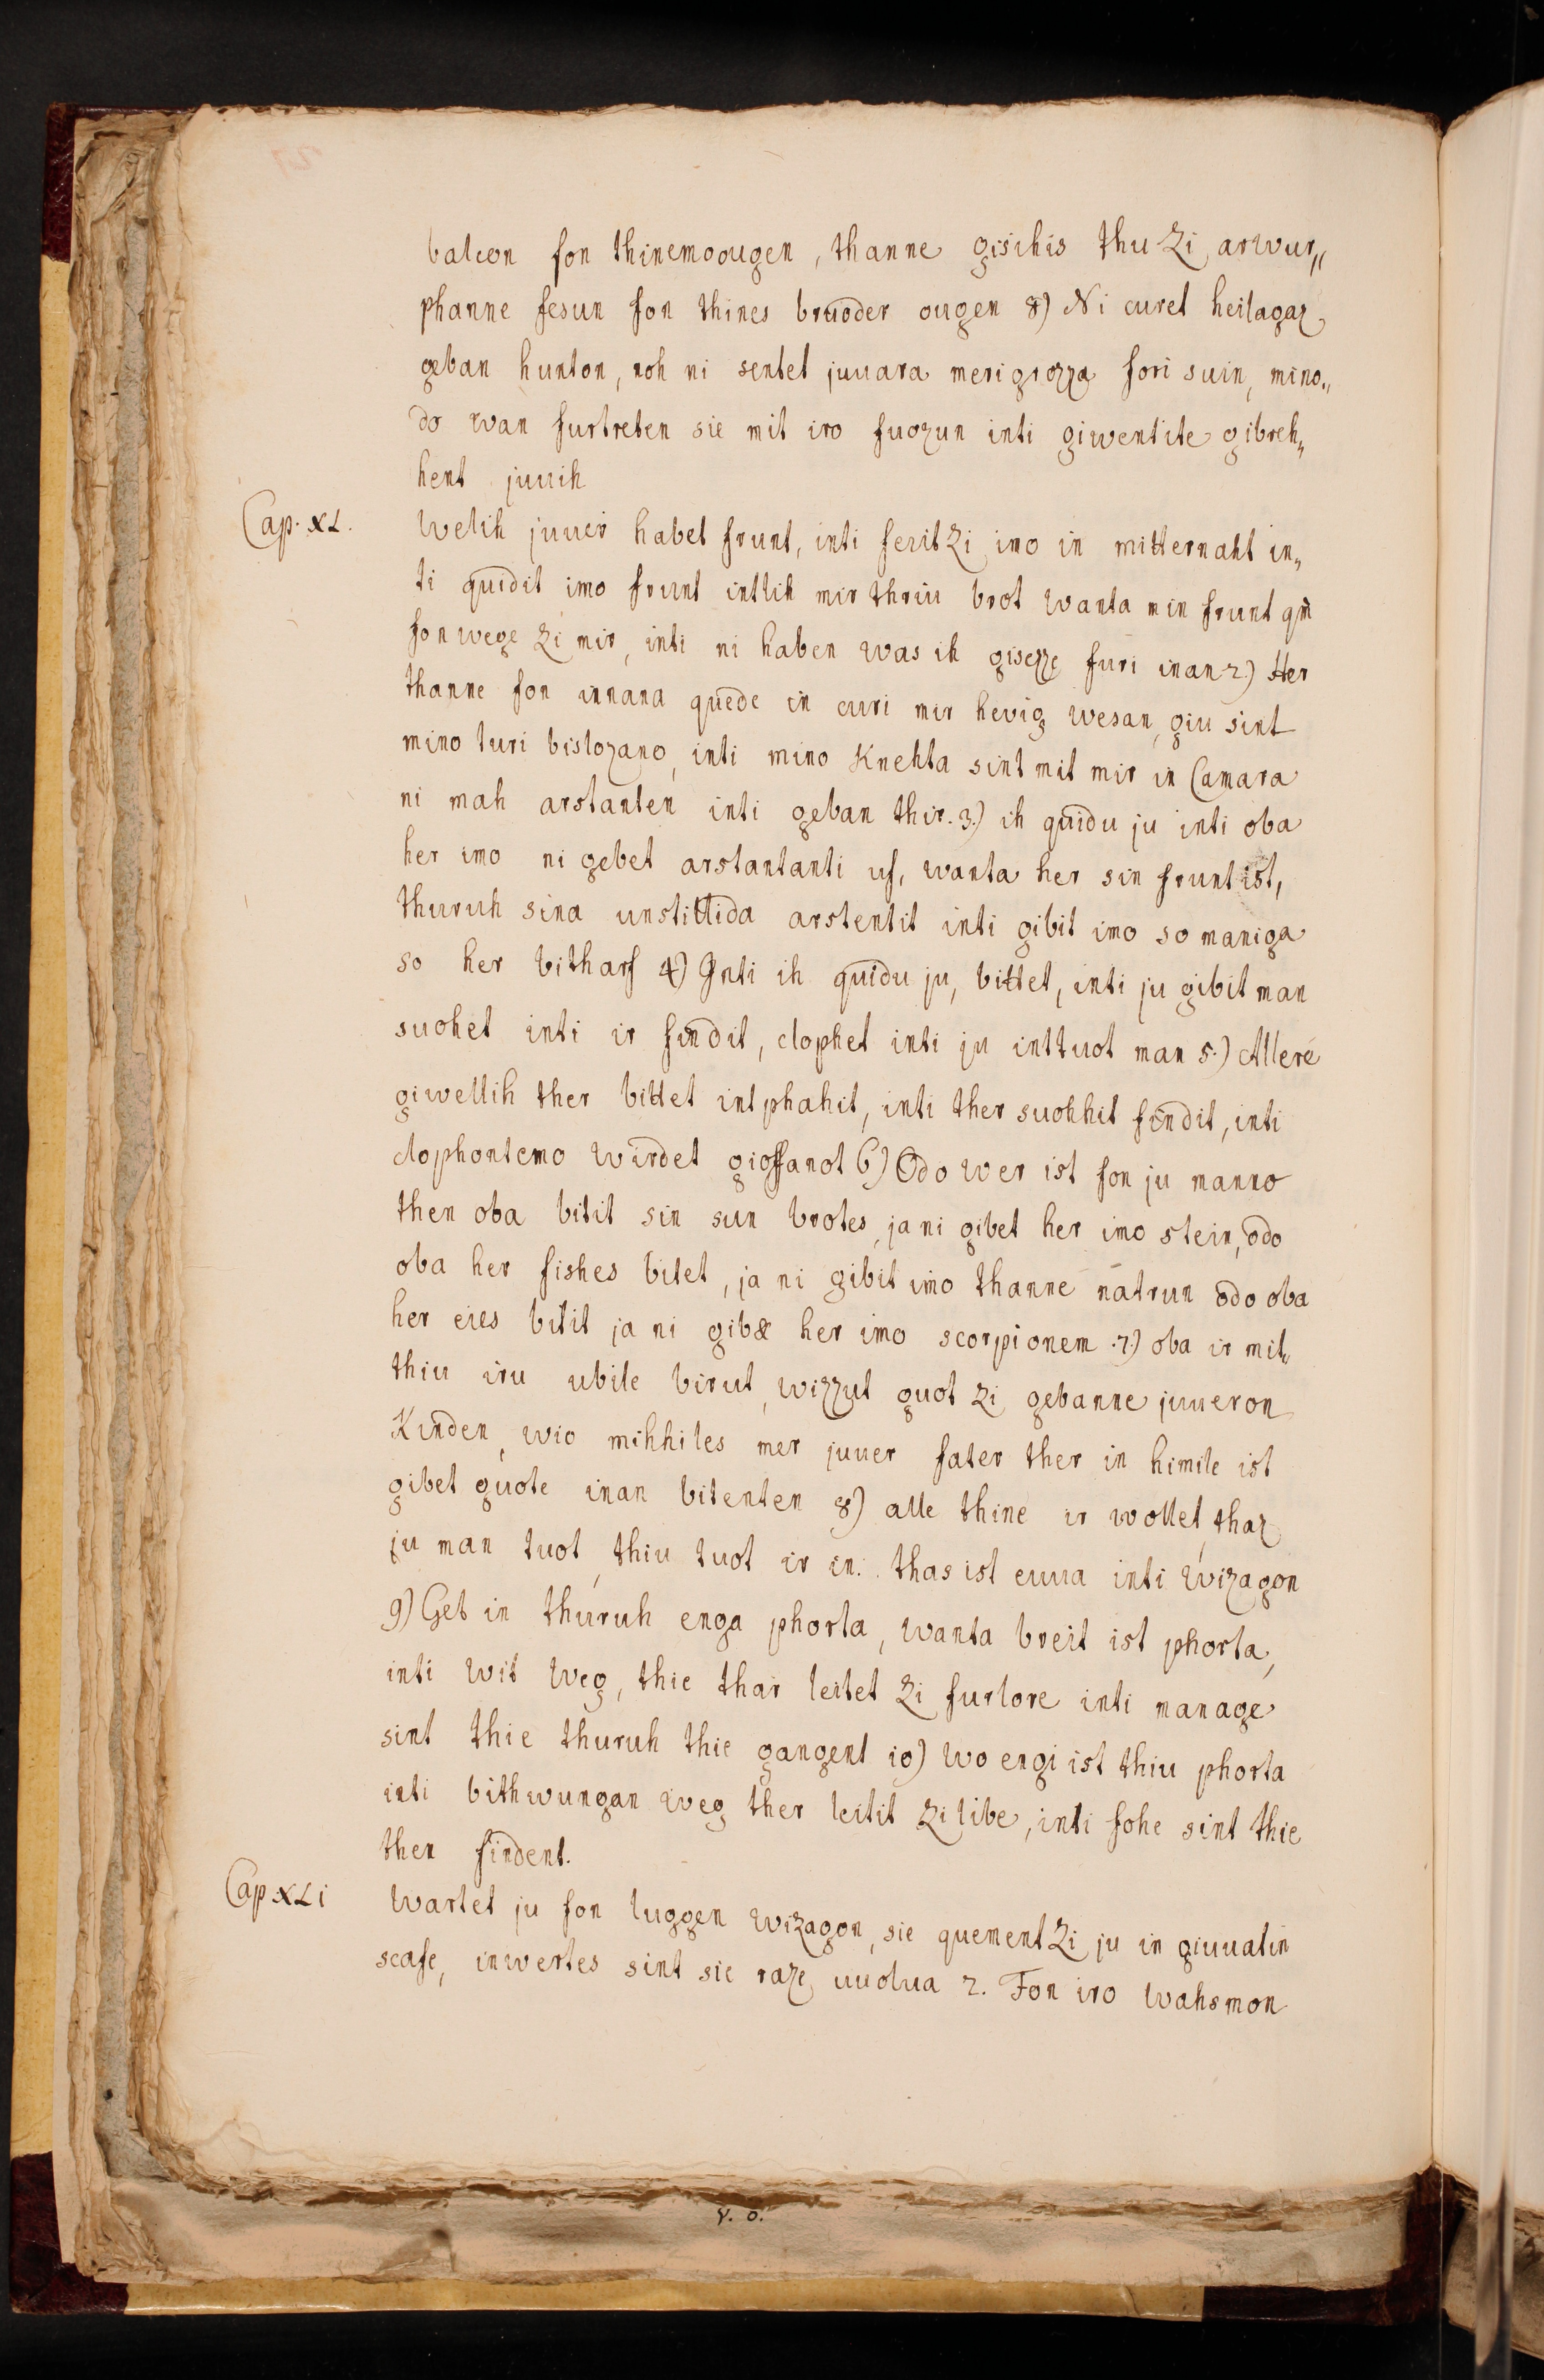 balcon fon thinemo ougen, thanne gisihis thu zi arwur„
phanne fesun fon thines bruoder ougen 8) Ni curet heilagaz
geban hunton, noh ni sentet juuara merigrozza fori suin, mino„
do wan furtreten sie mit iro fuozun inti giwentite gibreh„
hent juuih
Cap. XL. Welih juuer habet frunt, inti ferit zi imo in mitternaht in„
ti quidit imo frunt intlih mir thriu brot wanta min frunt qm̄
fon wege zi mir, inti ni haben was ih gisezze furi inan 2.) Her
thanne fon innana quede in curi mir hevig wesan, giu sint
mino turi bislozano, inti mino Knehta sint mit mir in Camara
ni mah arstanten inti geban thir. 3.) ih quidu ju inti oba
her imo ni gebet arstantanti uf, wanta her sin frunt ist,
thuruh sina unstillida arstentit inti gibit imo so maniga
so her bitharf 4) Inti ih quidu ju, bittet, inti ju gibit man
suohet inti ir findit, clophet inti ju inttuot man 5.) Allere
giwellih ther bittet intphahit, inti ther suohhit findit, inti
clophontemo wirdet gioffanot 6) Odo wer ist fon ju manno
then oba bitit sin sun brotes, ja ni gibet her imo stein, odo
oba her fishes bitet, ja ni gibit imo thanne natrun odo oba
her eies bitit ja ni gibæ her imo scorpionem .7.) oba ir mit„
thiu iru ubile birut, wizzut guot zi gebanne juueron
Kinden, wio mihhiles mer juuer fater ther in himile ist
gibet guote inan bitenten 8) alle thine ir wollet, thaz
ju man tuot, thiu tuot ir in. thas ist euua inti wizagon
9) Get in thuruh enga phorta, wanta breit ist phorta,
inti wit weg, thie thar leitet zi furlore inti manage
sint thie thuruh thie gangent 10) wo engi ist thiu phorta
inti bithwungan weg ther leitit zi libe, inti fohe sint thie
then findent.
Cap. XLi Wartet ju fon luggen wizagon, sie quement zi ju in giuuatin
scafe, inwertes sint sie raze uuolua 2. Fon iro wahsmon